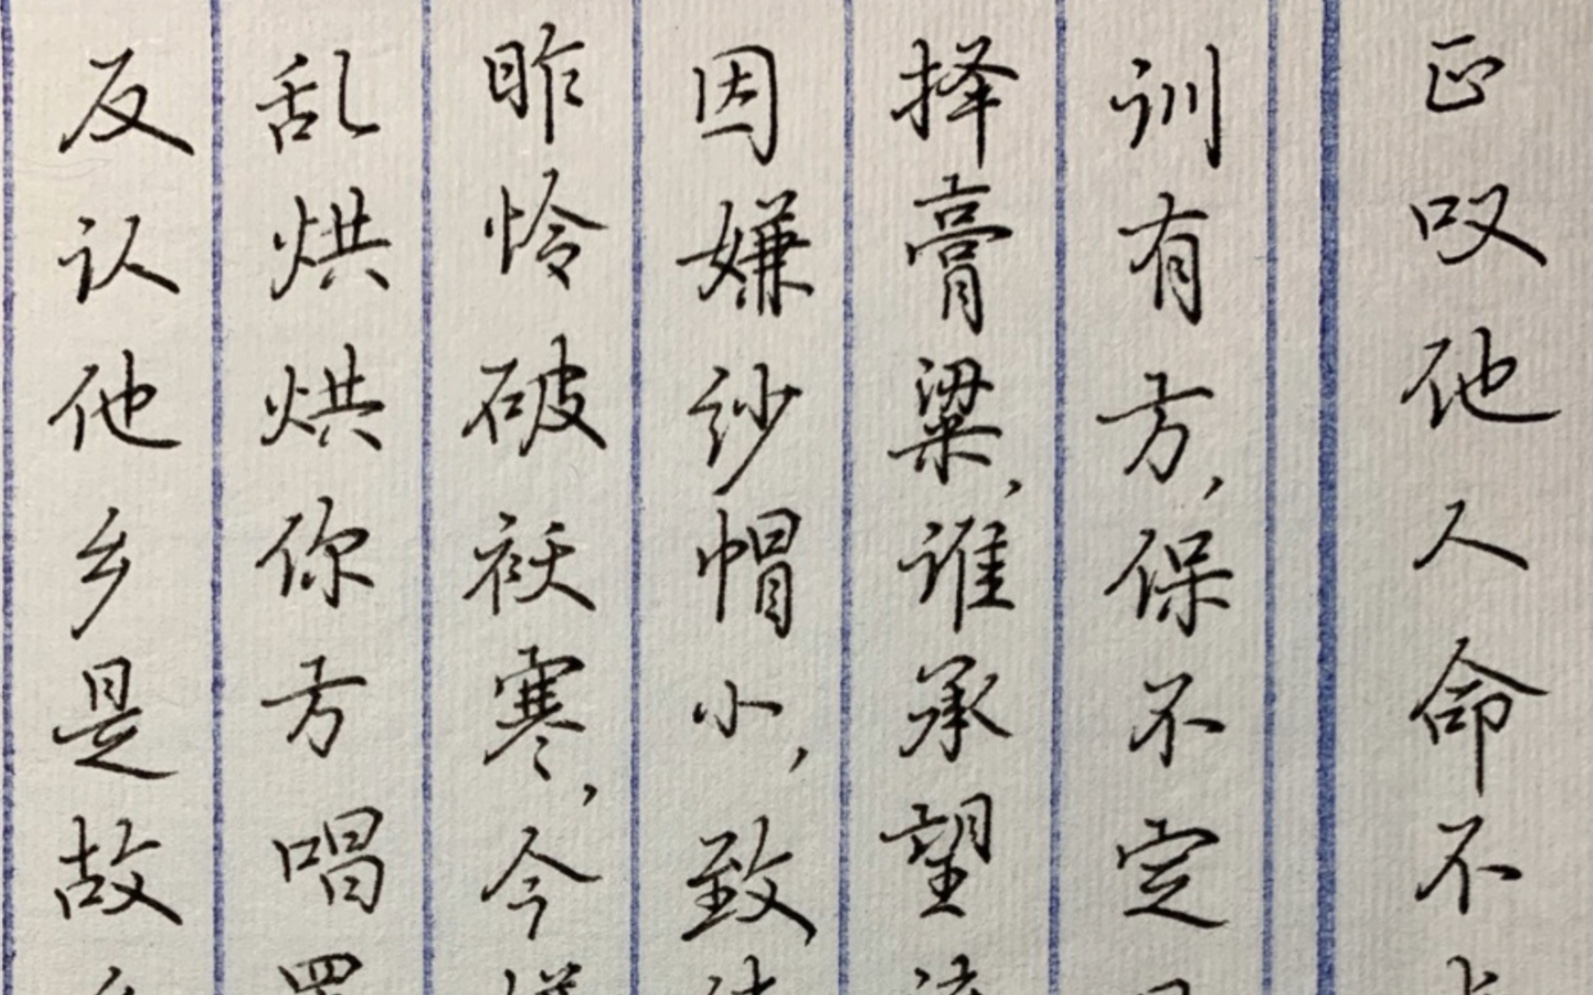 正叹他人命不
训有方，保不定
择膏粱，谁承望
因嫌纱帽小，致
昨怜破袄寒，今
乱烘烘你方唱
反认他乡是故